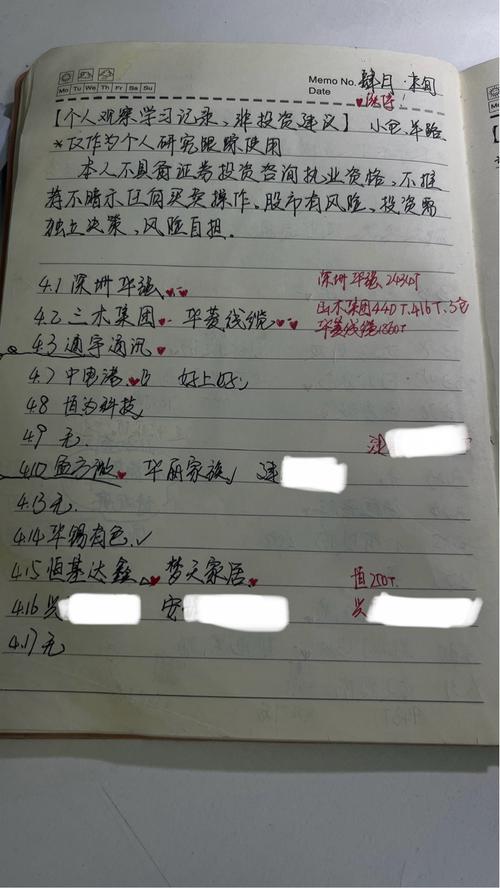 Mo Tu We Th Fr Sa Su
Memo No. 肆月·末旬
Date
【个人观察学习记录、非投资建议】
*仅作为个人研究跟踪使用
本人不具备证券投资咨询执业资格、不推
荐不暗示任何买卖操作。股市有风险、投资需
独立决策、风险自担.
4.1 深圳华强
深圳华强 2430T
4.2 三木集团 华菱线缆
4.3 通宇通讯
4.7 中电港 好上好
4.8 恒为科技
4.9 无.
4.10 孟方微 华丽家族 建
4.13 无.
4.14 华锡有色
4.15 恒基达鑫 梦天家居
恒250T
4.16 兴 宏
兴
4.17 无